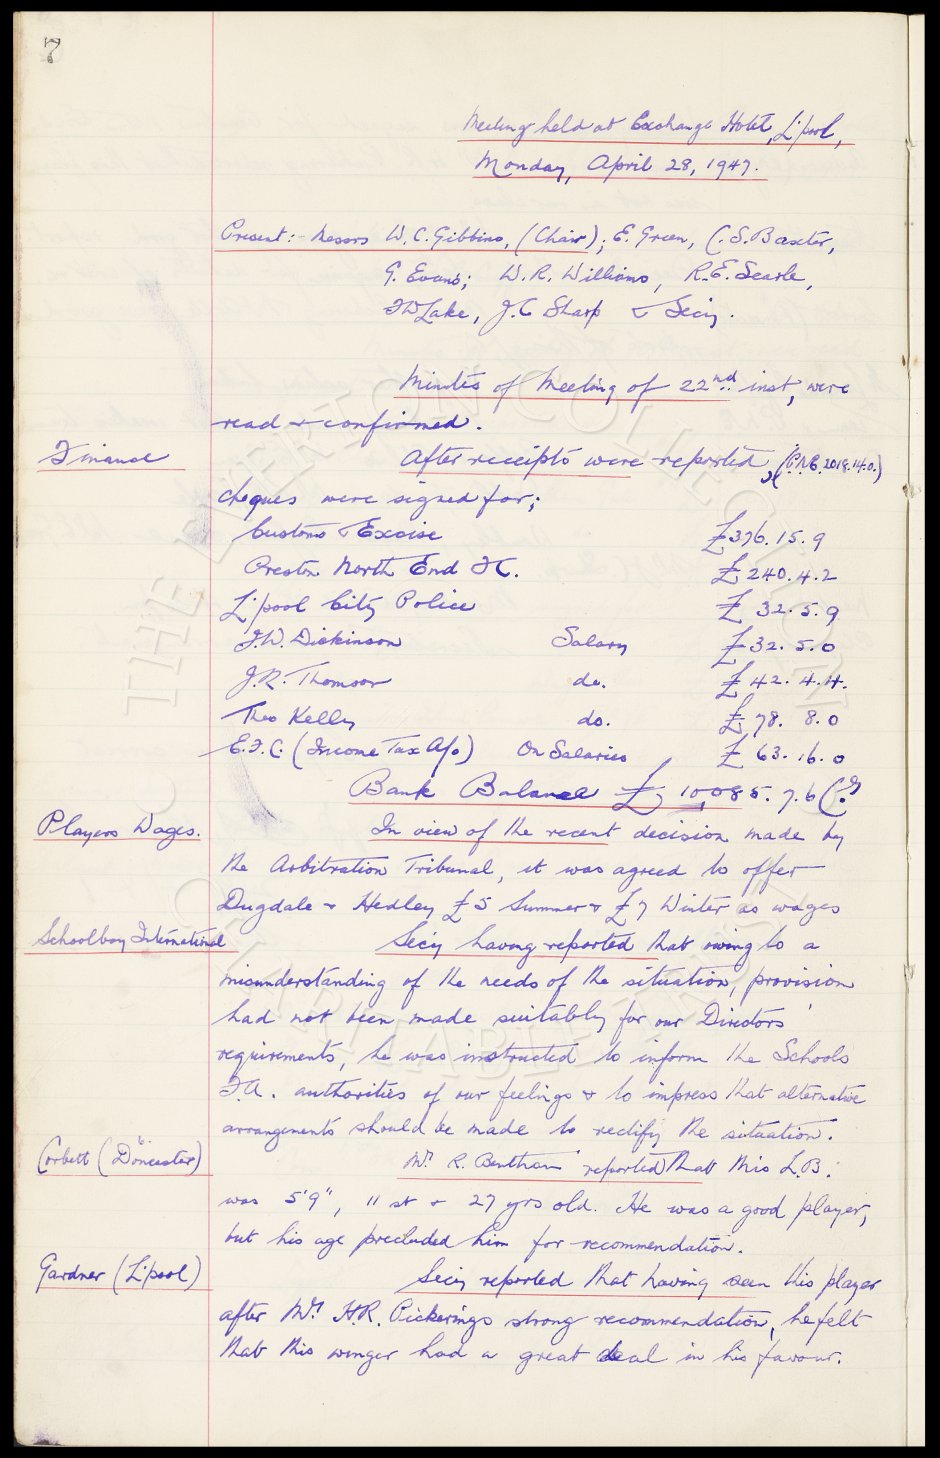 7
Meeting held at Exchange Hotel, L'pool,
Monday, April 28, 1947.
Present:- Messrs W.C. Gibbins, (Chair); E. Green, C.S. Baxter,
G. Evans; W.R. Williams, R.E. Searle,
F W Lake, J.C Sharp & Sec'y.
Minutes of Meeting of 22nd inst, were
read & confirmed.
Finance
After receipts were reported, (P.N.E. 2018.14.0.)
cheques were signed for;
Customs & Excise £376.15.9
Preston North End F C. £240.4.2
L'pool City Police £32.5.9
J.W. Dickinson Salary £32.5.0
J.R. Thomson do. £42.4.4.
Theo Kelly do. £78.8.0
E.F.C. (Income Tax A/c) On Salaries £63.16.0
Bank Balance £10,085.7.6 Cr.
Players Wages.
In view of the recent decision made by
the Arbitration Tribunal, it was agreed to offer
Dugdale & Hedley £5 Summer & £7 Winter as wages
Schoolboy International
Sec'y having reported that owing to a
misunderstanding of the needs of the situation, provision
had not been made suitably for our Directors'
requirements, he was instructed to inform the Schools
F.A. authorities of our feelings & to impress that alternative
arrangements should be made to rectify the situation.
Corbett (Doncaster)
Mr. R. Bentham reported that this L.B.
was 5'9", 11 st & 27 yrs old. He was a good player,
but his age precluded him for recommendation.
Gardner (L'pool)
Sec'y reported that having seen this player
after Mr. H.R. Pickerings strong recommendation, he felt
that this winger had a great deal in his favour.
THE EVERTON COLLECTION
CHARITABLE TRUST